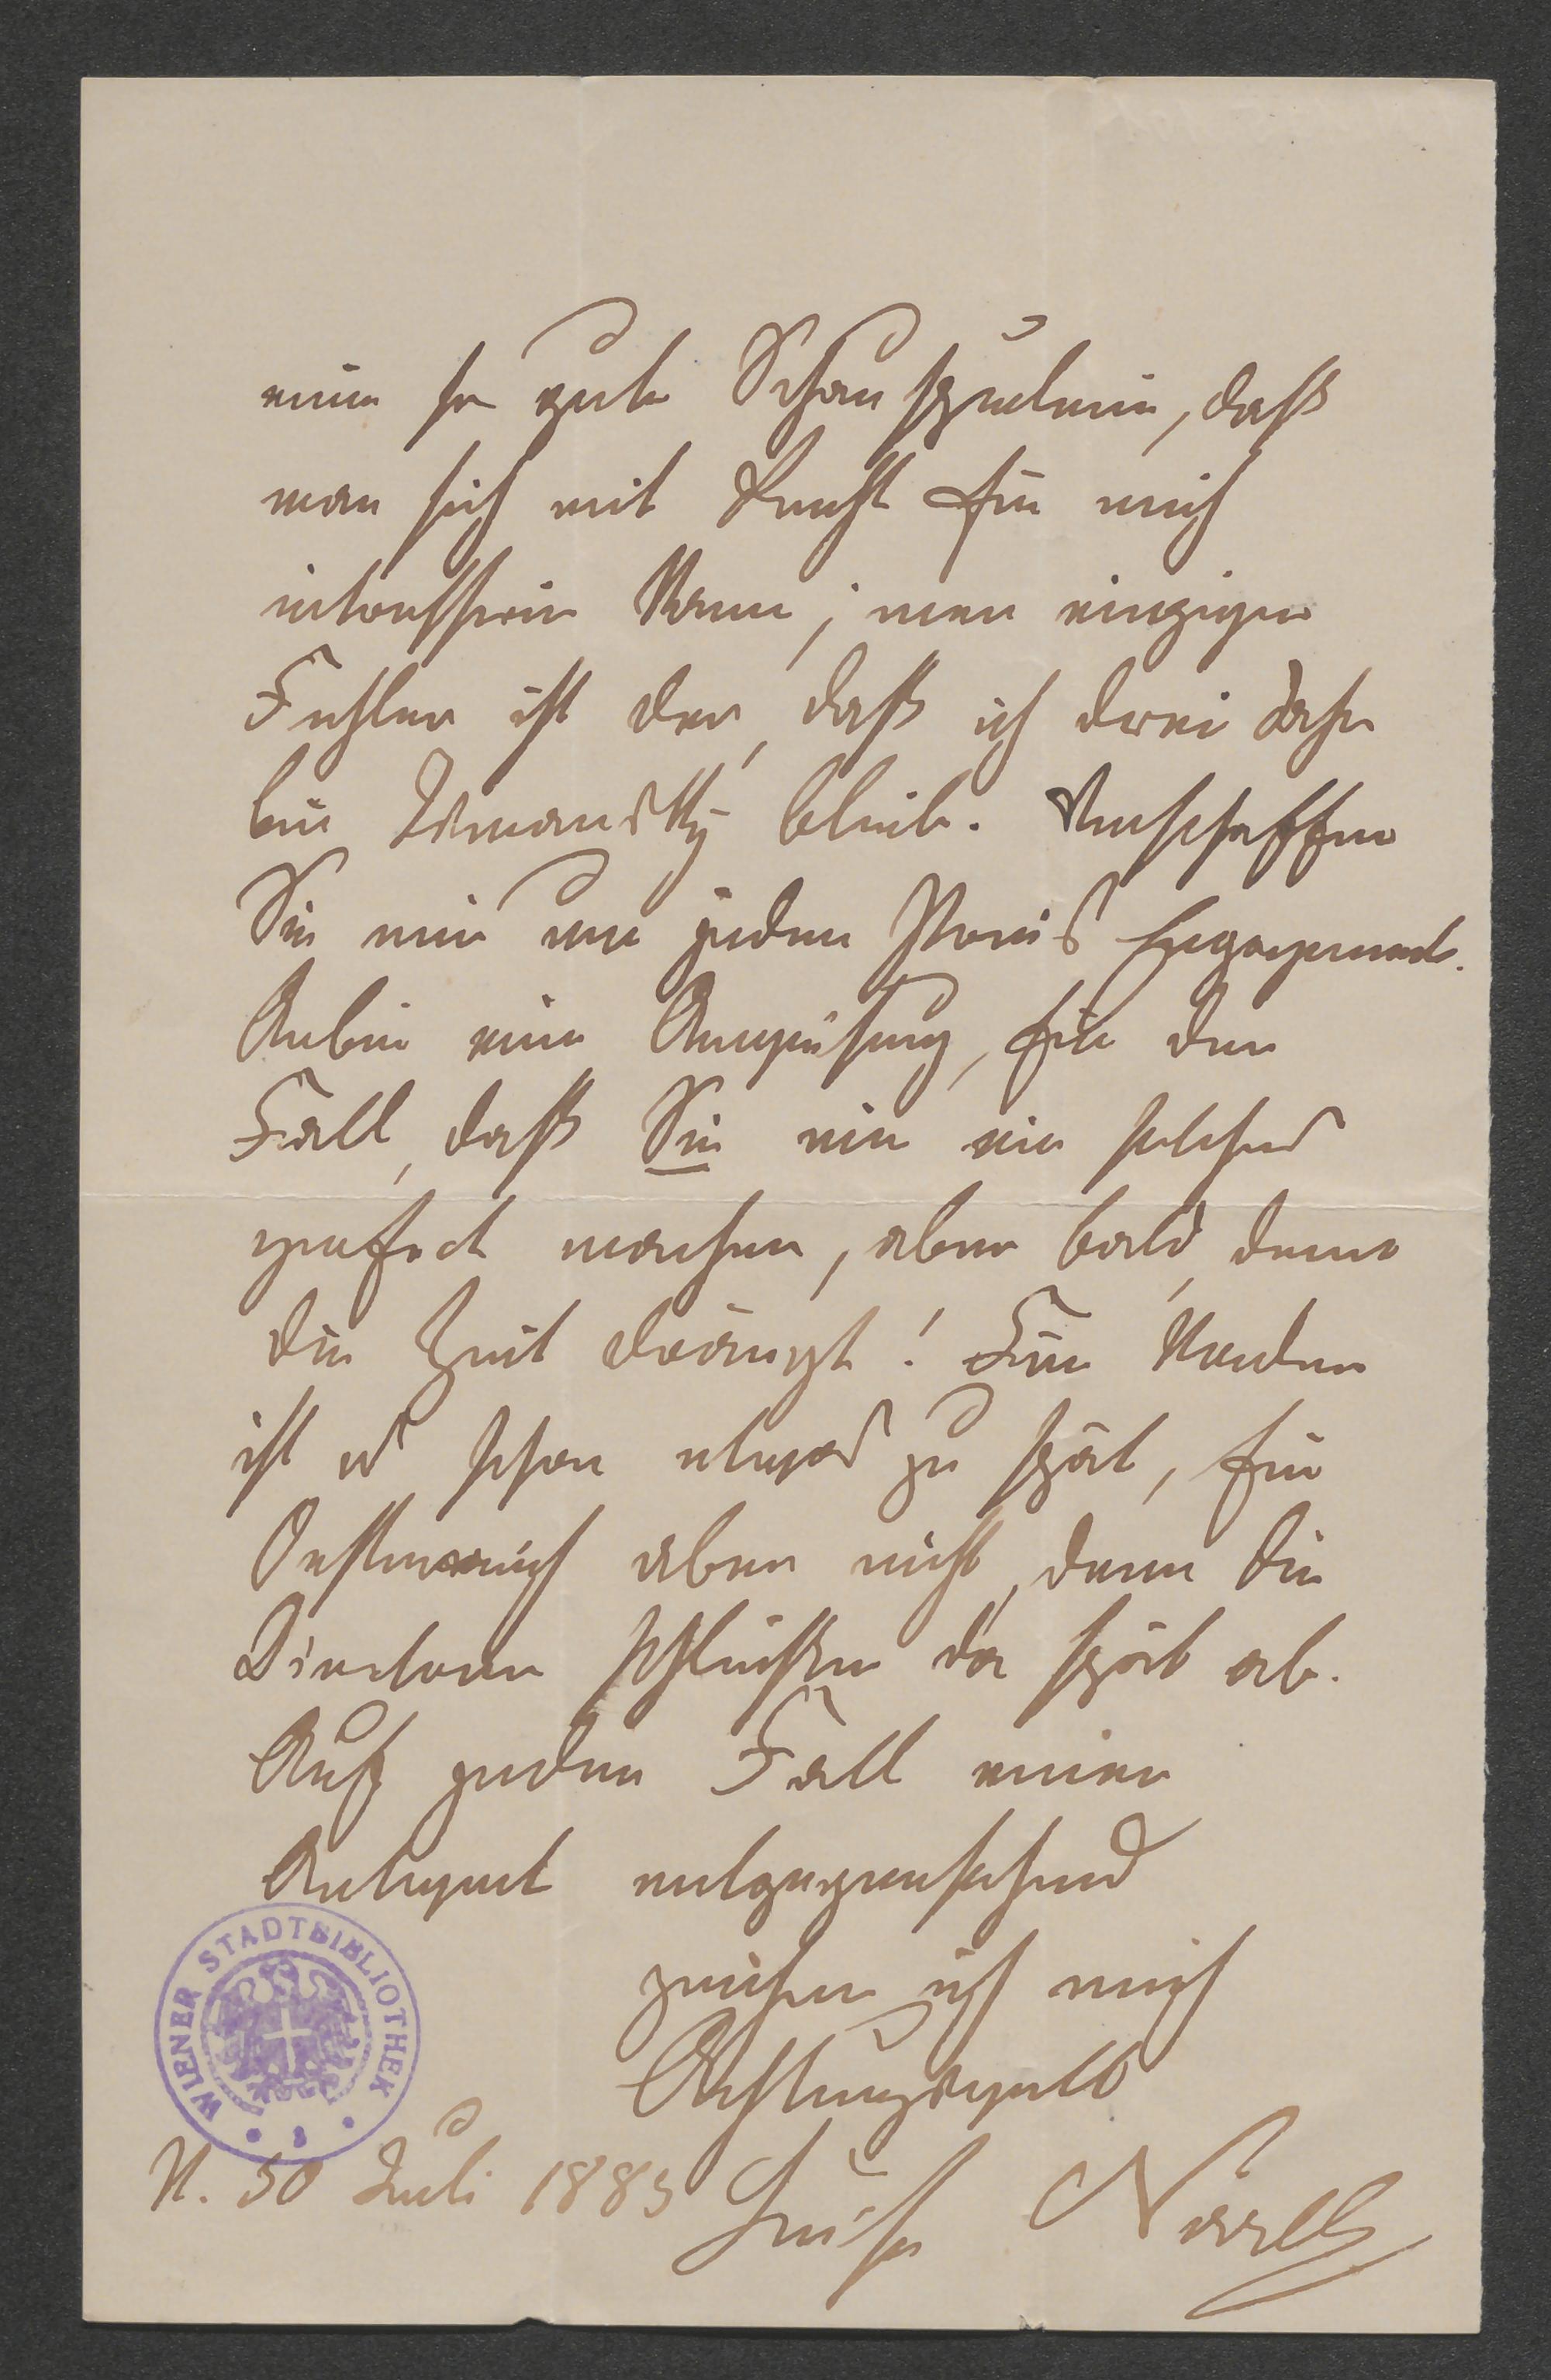 eine so gute Schauspielerin, daß
man sich mit Recht für mich
interessiren kann; mein einziger
Fehler ist der, daß ich drei Jahre
bei blieb. Verschaffen
Sie mir um jeden Preis Engagement.
Anbei eine Anweisung, für den
Fall, daß Sie mir ein solches
perfect machen, aber bald, denn
die Zeit drängt! Für Norden
ist es schon etwas zu spät, für
Oesterreich aber nicht, denn die
Directoren schließen da spät ab.
Auf jeden Fall einer
Antwort entgegensehend
zeichne ich mich
Achtungsvoll
N. 30 Juli 1883 Luise
WIENER STADTBIBLIOTHEK